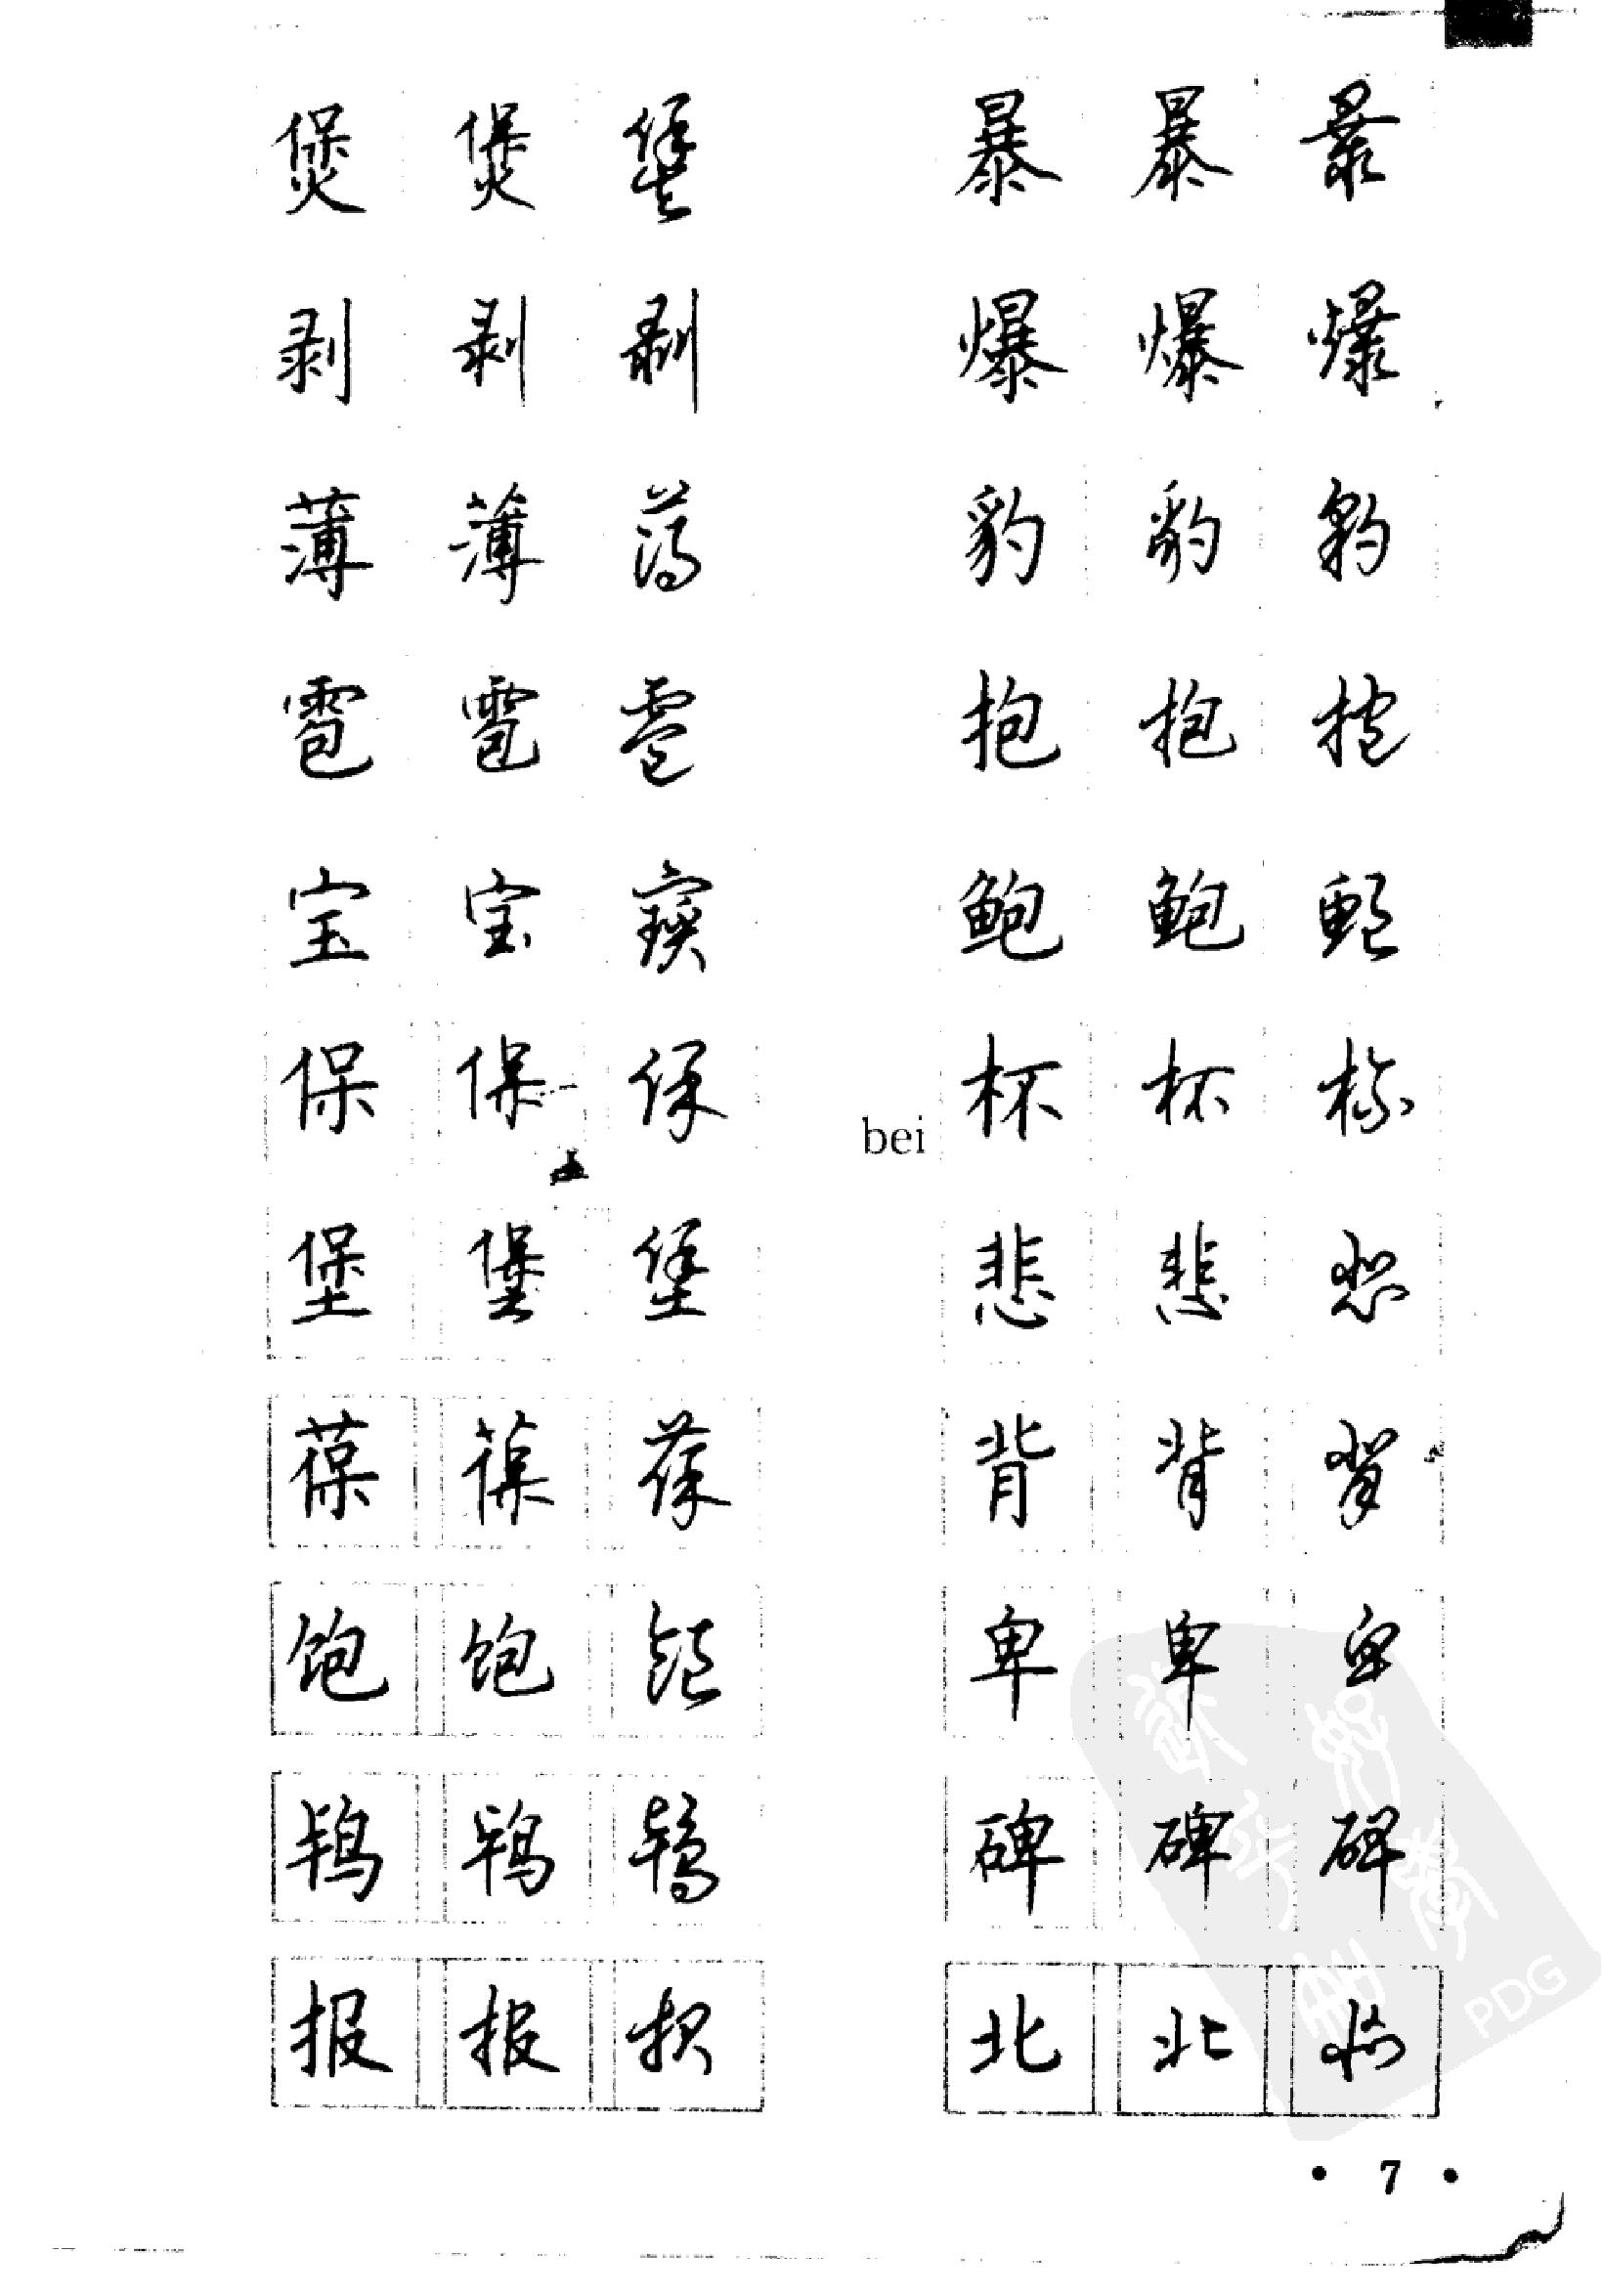 煲 煲 煲
剥 剥 剥
薄 薄 薄
雹 雹 雹
宝 宝 寶
保 保 保
堡 堡 堡
葆 葆 葆
饱 饱 饱
鸨 鸨 鸨
报 报 报
暴 暴 暴
爆 爆 爆
豹 豹 豹
抱 抱 抱
鲍 鲍 鲍
bei 杯 杯 杯
悲 悲 悲
背 背 背
卑 卑 卑
碑 碑 碑
北 北 北
• 7 •
PDG